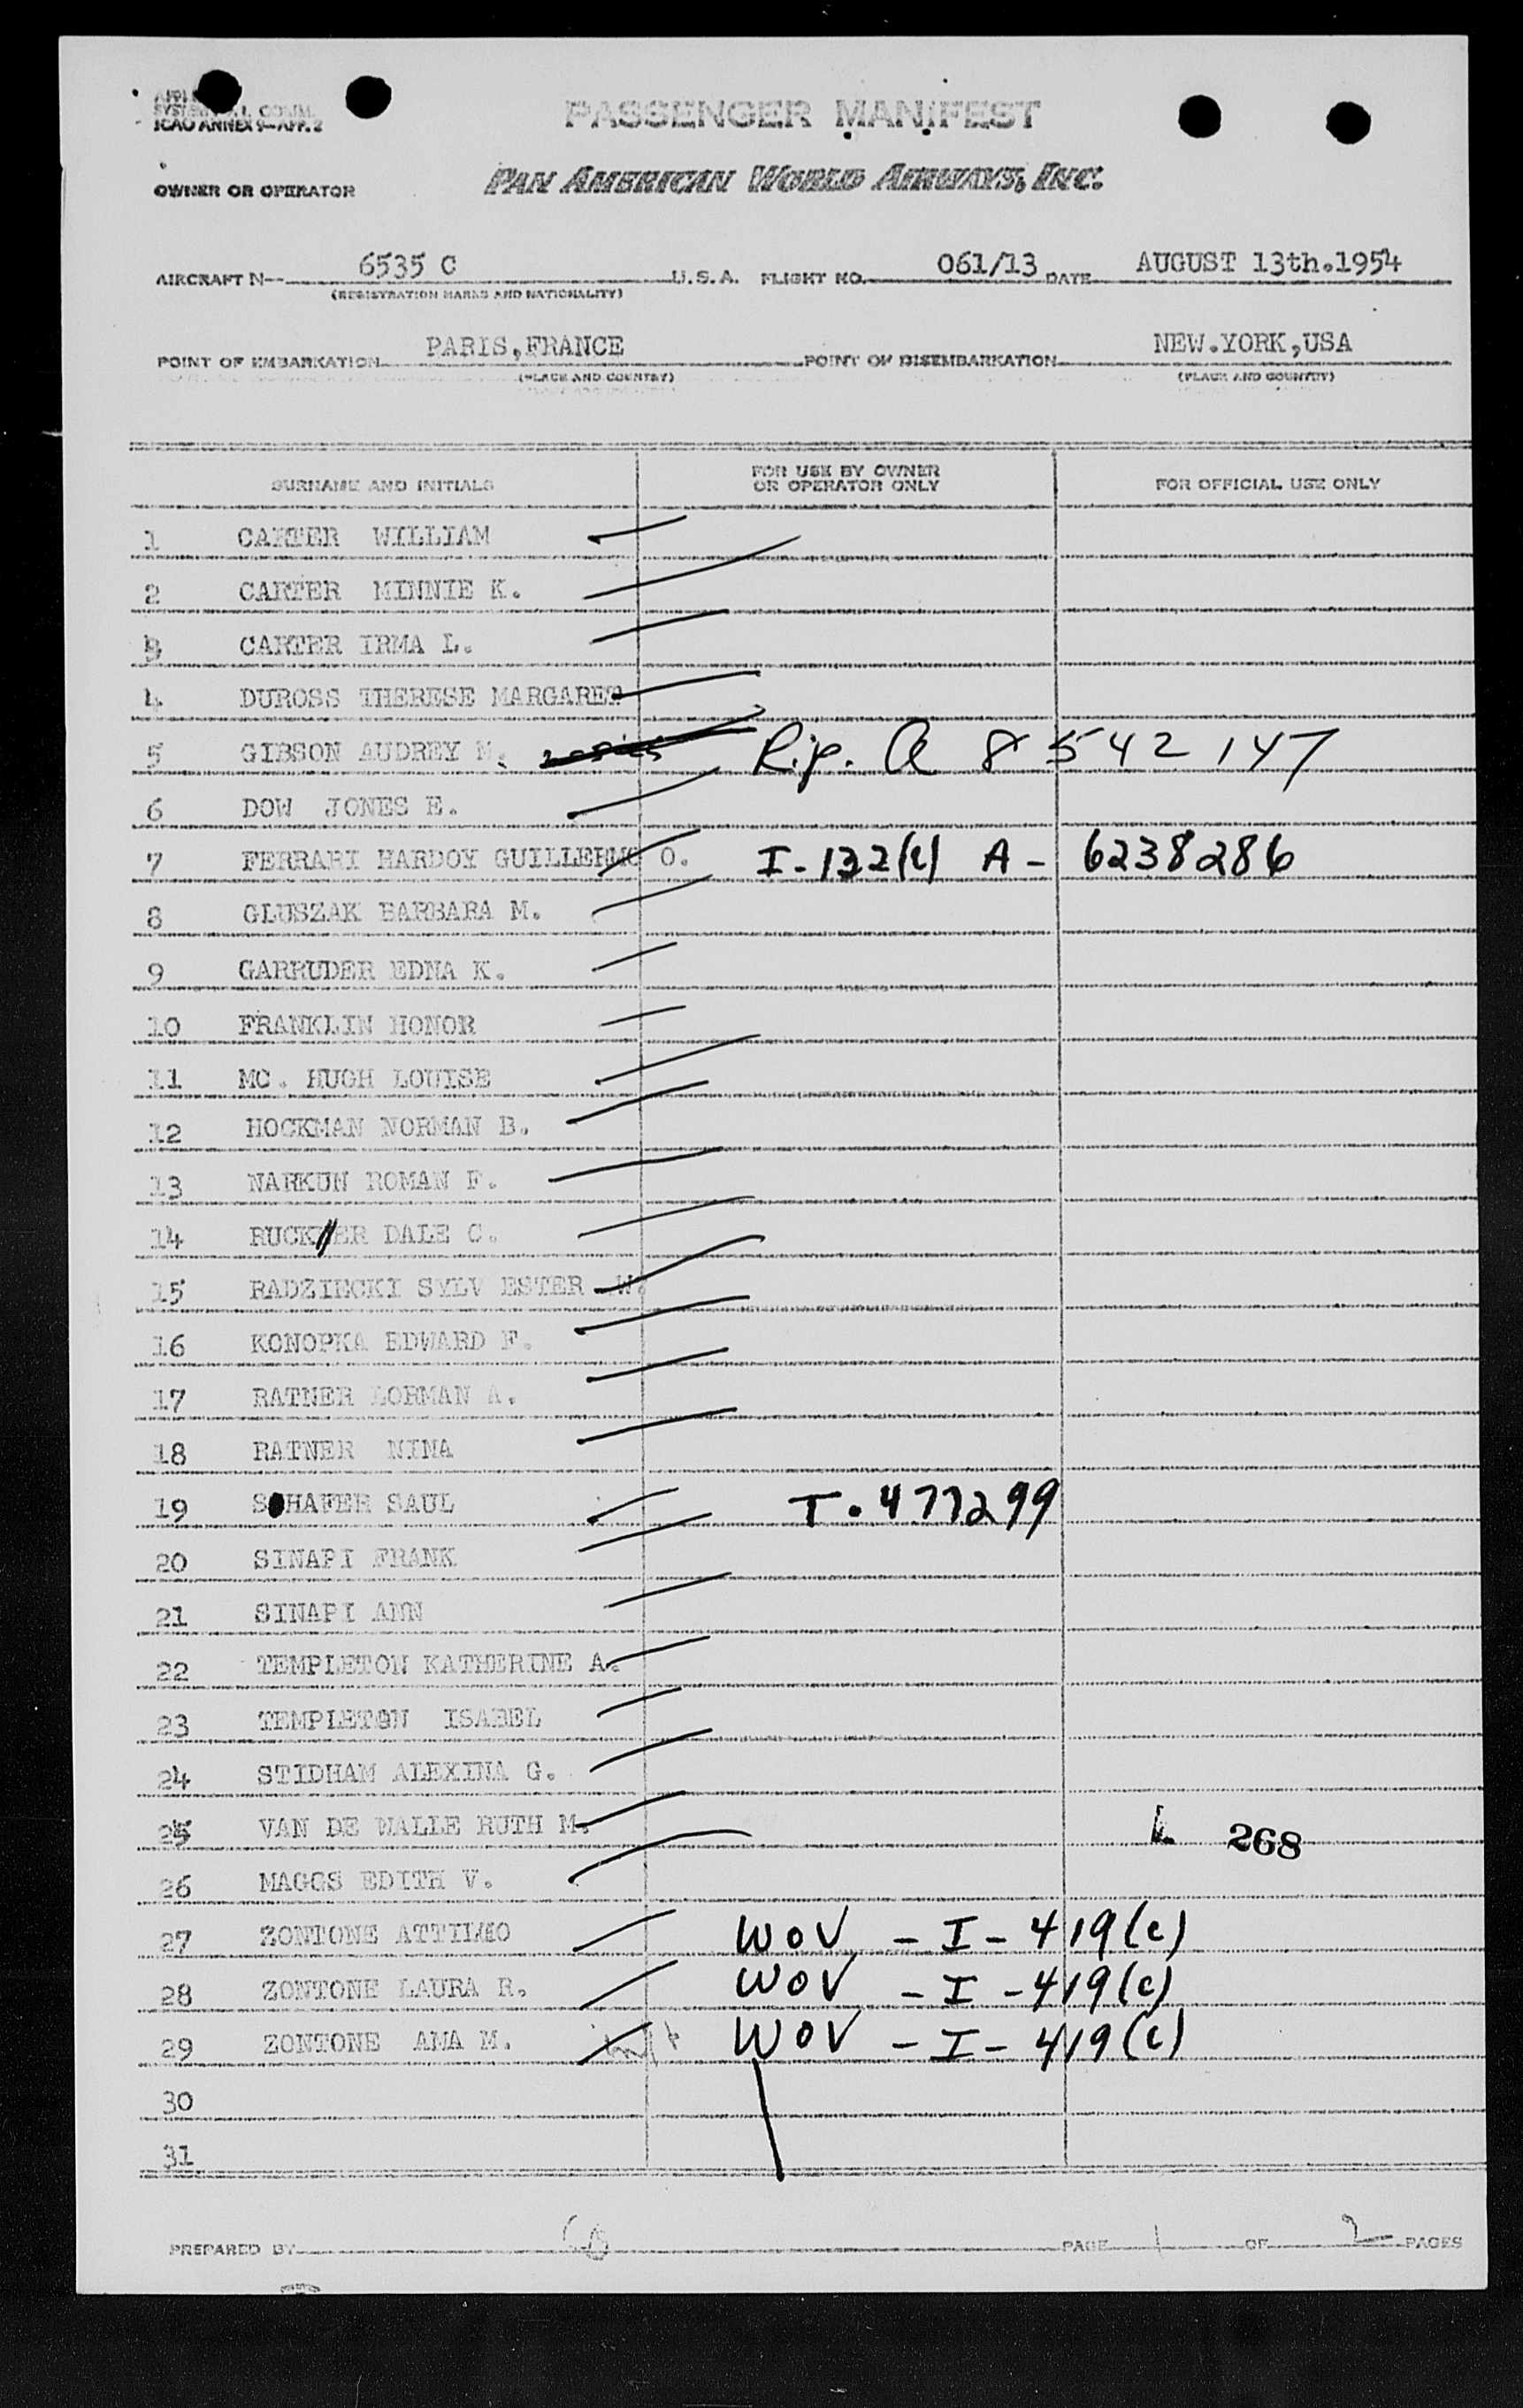 ICAO ANNEX 9—APP. 2
PASSENGER MANIFEST
OWNER OR OPERATOR PAN AMERICAN WORLD AIRWAYS, INC.
AIRCRAFT N-- 6535 C U. S. A. FLIGHT NO. 061/13 DATE AUGUST 13th.1954
(REGISTRATION MARKS AND NATIONALITY)
POINT OF EMBARKATION PARIS,FRANCE POINT OF DISEMBARKATION NEW.YORK,USA
(PLACE AND COUNTRY) (PLACE AND COUNTRY)
SURNAME AND INITIALS FOR USE BY OWNER OR OPERATOR ONLY FOR OFFICIAL USE ONLY
1 CARTER WILLIAM
2 CARTER MINNIE K.
3 CARTER IRMA L.
4 DUROSS THERESE MARGARET
5 GIBSON AUDREY M. Rip. A 8 542 147
6 DOW JONES E.
7 FERRARI HARDOY GUILLERMO O. I-132(c) A- 6238286
8 GLUSZAK BARBARA M.
9 GARRUDER EDNA K.
10 FRANKLIN HONOR
11 MC. HUGH LOUISE
12 HOCKMAN NORMAN B.
13 NARKUN ROMAN F.
14 RUCKER DALE C.
15 RADZIECKI SYLV ESTER W.
16 KONOPKA EDWARD F.
17 RATNER LORMAN A.
18 RATNER NINA
19 SCHAFER SAUL T. 477299
20 SINAPI FRANK
21 SINAPI ANN
22 TEMPLETON KATHERINE A.
23 TEMPLETON ISABEL
24 STIDHAM ALEXINA G.
25 VAN DE WALLE RUTH M. 268
26 MAGGS EDITH V.
27 ZONTONE ATTILIO WOV - I - 419(c)
28 ZONTONE LAURA R. WOV - I - 419(c)
29 ZONTONE AMA M. WOV - I - 419(c)
30
31
PREPARED BY PAGE 1 OF 2 PAGES